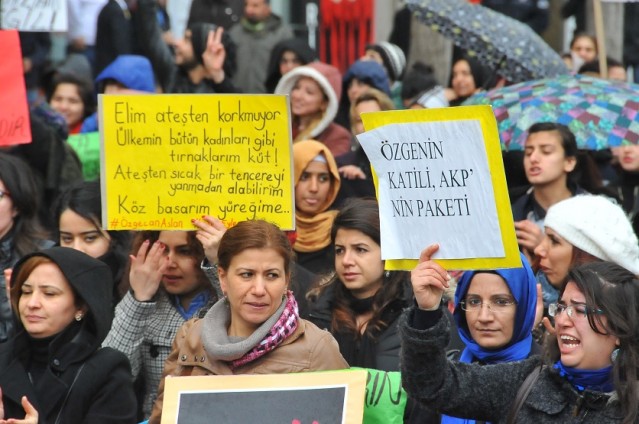 Elim ateşten korkmuyor
Ülkemin bütün kadınları gibi
tırnaklarım küt!
Ateşten sıcak bir tencereyi
yanmadan alabilirim
Köz basarım yüreğime..
#OzgecanAslan
ÖZGENİN
KATİLİ, AKP'
NİN PAKETİ